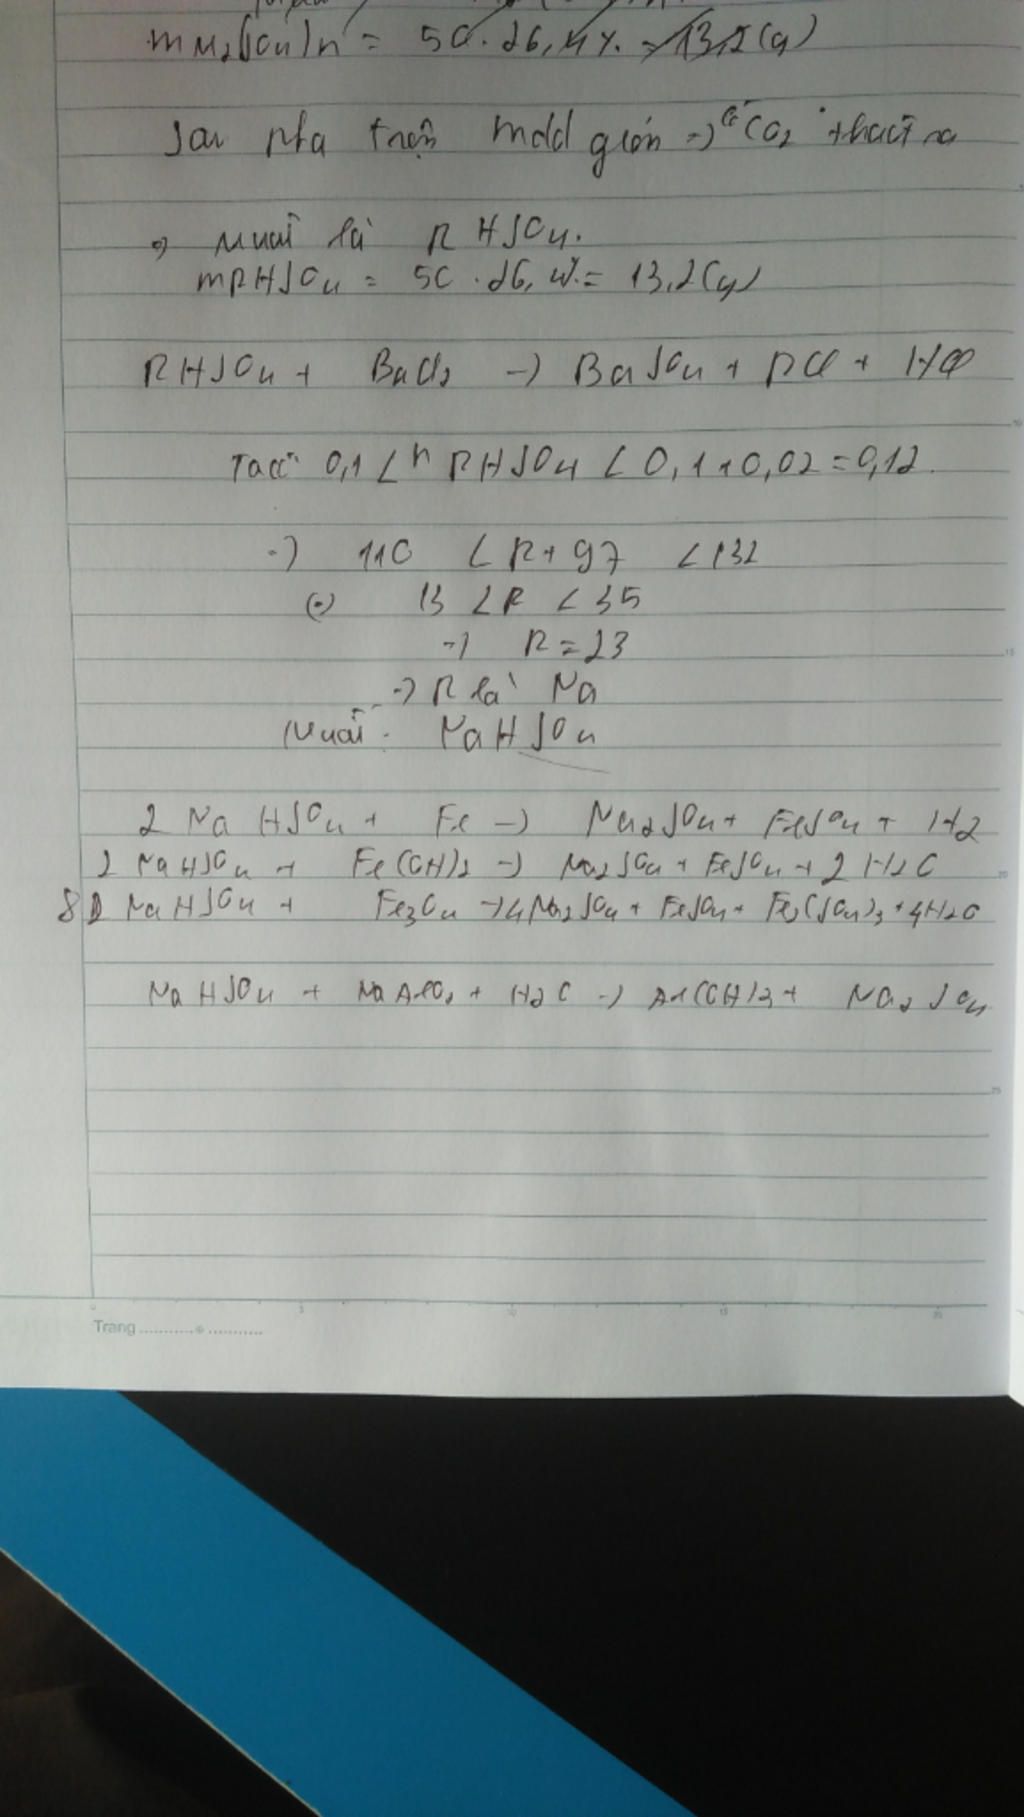 mM2(SO4)n = 50.26,4%. = 13,2(g)
Sau pha trộn mdd giảm => có CO2 thoát ra
=> Muối là RHSO4.
mRHSO4 = 50.26,4%= 13,2(g)
RHSO4 + BaCl2 -> BaSO4 + RCl + HCl
Ta có 0,1 < n RHSO4 < 0,1+0,02=0,12.
-> 110 < R+97 <132
(=) 13 <R <35
-> R=23
-> R là Na
Muối: NaHSO4
2 NaHSO4 + Fe -> Na2SO4 + FeSO4 + H2
2 NaHSO4 + Fe(OH)2 -> Na2SO4 + FeSO4 + 2 H2O
8 NaHSO4 + Fe3O4 -> 4Na2SO4 + FeSO4 + Fe2(SO4)3 + 4H2O
NaHSO4 + NaAlO2 + H2O -> Al(OH)3 + Na2SO4
Trang